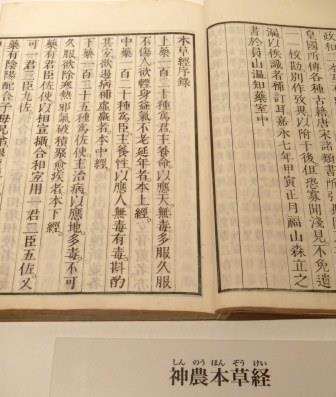 皇國所傳各種古籍
一校勘別作攷異以附于後但恐寡聞淺見不免遺
漏以俟識者補訂耳嘉永七年甲寅正月福山森立之
書於員山温知藥室中
本草經序錄
上藥一百二十種爲君主養命以應天無毒多服久服
不傷人欲輕身益氣不老延年者本上經
中藥一百二十種爲臣主養性以應人無毒有毒斟酌
其宜欲遏病補虛羸者本中經
下藥一百二十五種爲佐使主治病以應地多毒不可
久服欲除寒熱邪氣破積聚愈疾者本下經
藥有君臣佐使以相宣攝合和宜用一君二臣五佐又
可一君三臣九佐
藥有陰陽配合子母兄弟
しんのうほんぞうけい
神農本草経